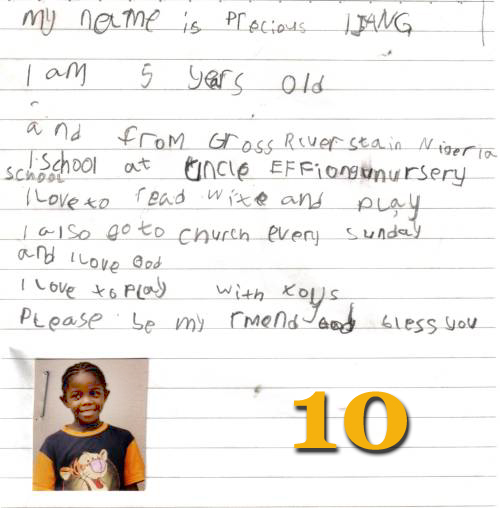 my name is Precious IJANG
I am 5 years old
and from Gross River stain Nigeria
I school at uncle EFFiong nursery
school
I Love to read wite and play
I also go to church every sunday
and I Love God
I Love to Play with toys
PLease be my rmend God bless you
10